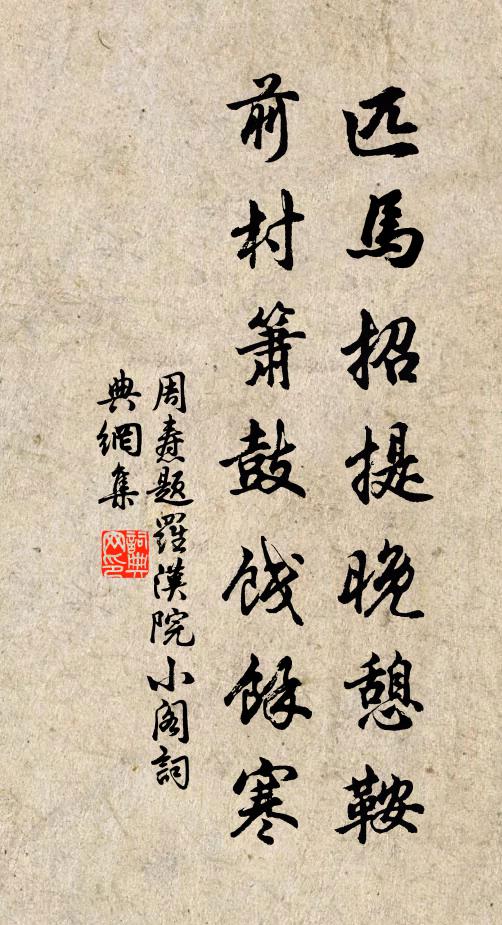 匹馬招提晚憩鞍
前村簫鼓餞餘寒
周燾題羅漢院小閣詞
典網集
詞典网印